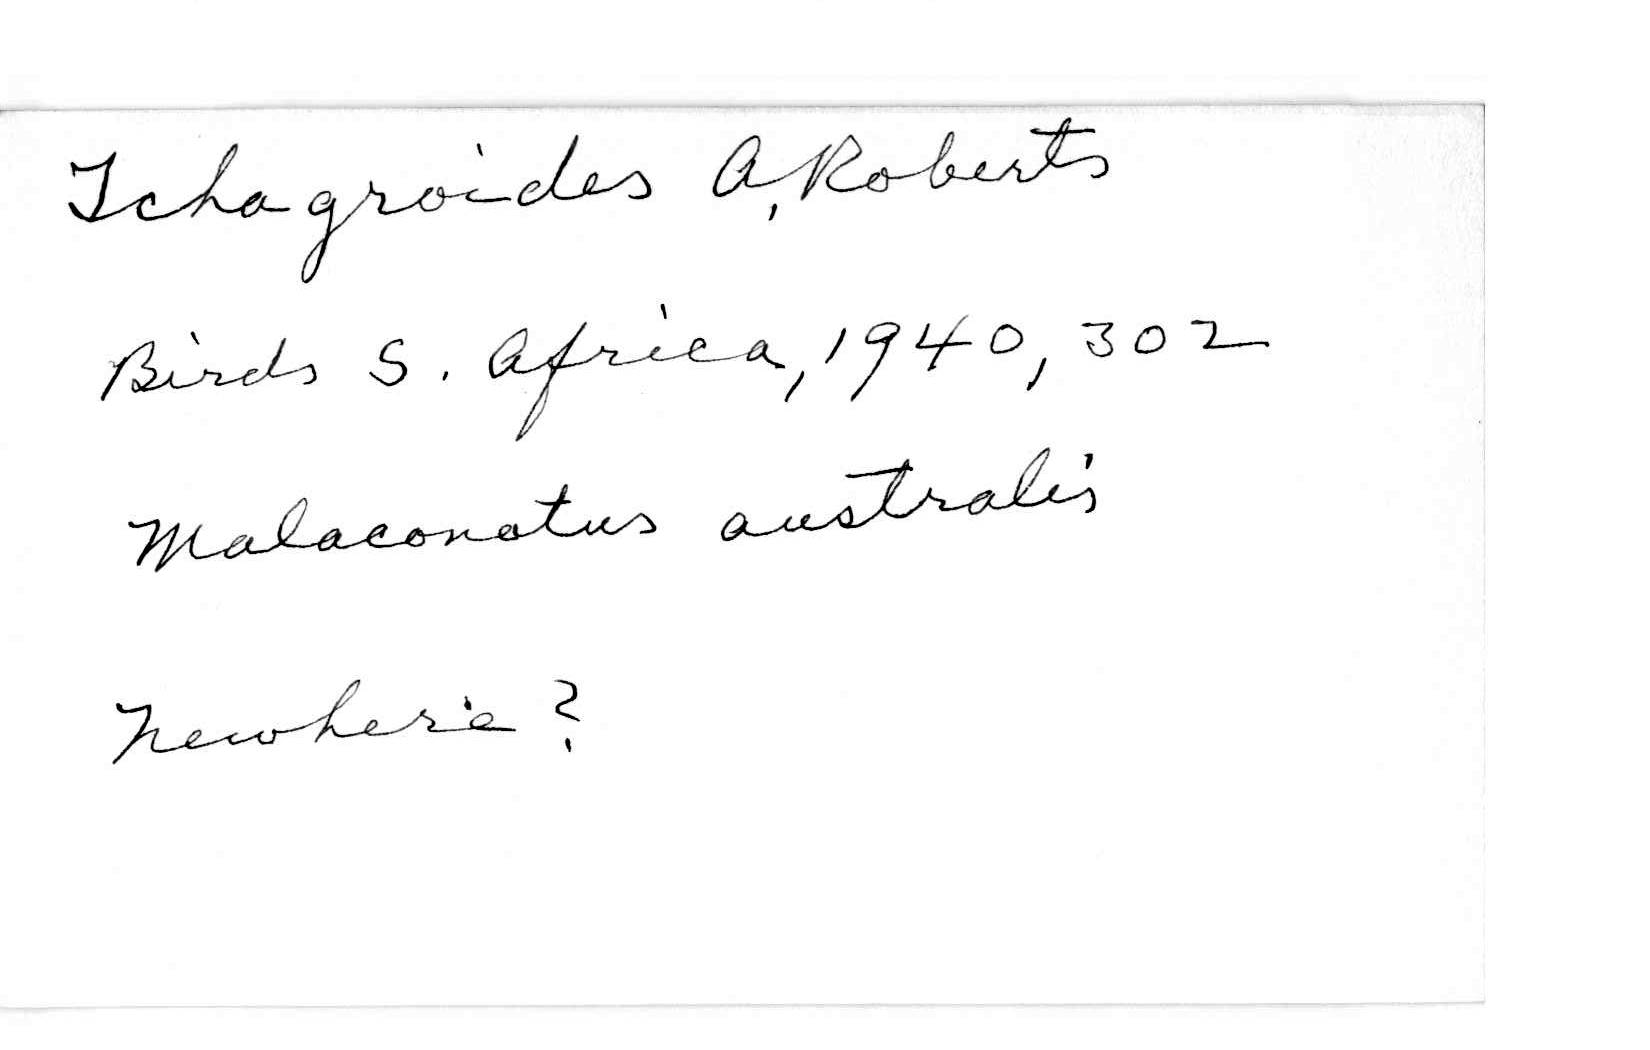 Tchagroides A, Roberts
Birds S. Africa, 1940, 302
Malaconotus australis
New here ?